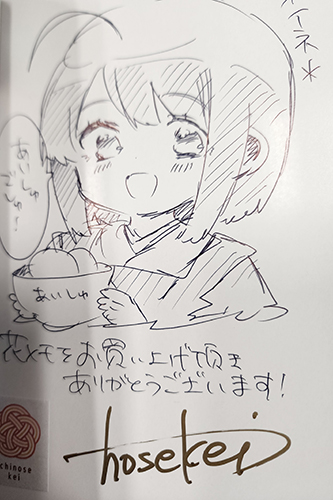 イーネ*
あいしゅ
ごしゅ!
あいしゅ
花メモをお買い上げ頂き
ありがとうございます!
hosekei
chinose
kei